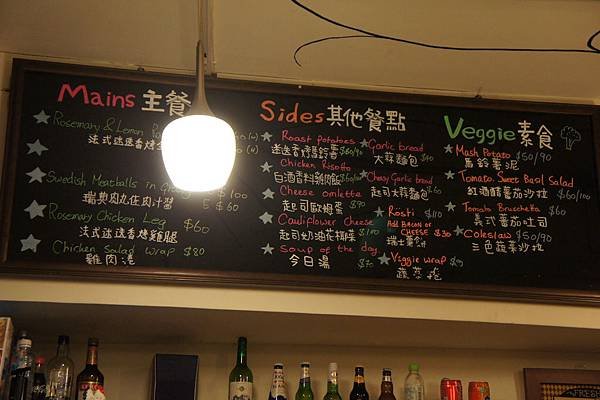 Mains 主餐
Rosemary & Lemon
法式迷迭香烤全
Swedish Meatballs in Gravy
瑞典肉丸佐肉汁醬
$100
$60
Rosemary Chicken Leg $60
法式迷迭香烤雞腿
Chicken Salad wrap $80
雞肉捲
Sides 其他餐點
Roast potatoes
迷迭香烤馬鈴薯 $60/90
Chicken Risotto
白酒香料雞燉飯
Cheese omlette
起司歐姆蛋 $90
Cauliflower Cheese
起司奶油花椰菜 $100
Soup of the day
今日湯 $70
Garlic bread
大蒜麵包
Cheesy Garlic bread
起司大蒜麵包 $60
Rösti $110
Add BACON or CHEESE $30
瑞士薯餅
Veggie wrap
蔬菜捲
Veggie 素食
Mash Potato $50/90
馬鈴薯泥
Tomato Sweet Basil Salad
紅酒醋蕃茄沙拉 $60/100
Tomato Bruschetta $60
義式蕃茄吐司
Coleslaw $50/90
三色蔬菜沙拉
FRESH